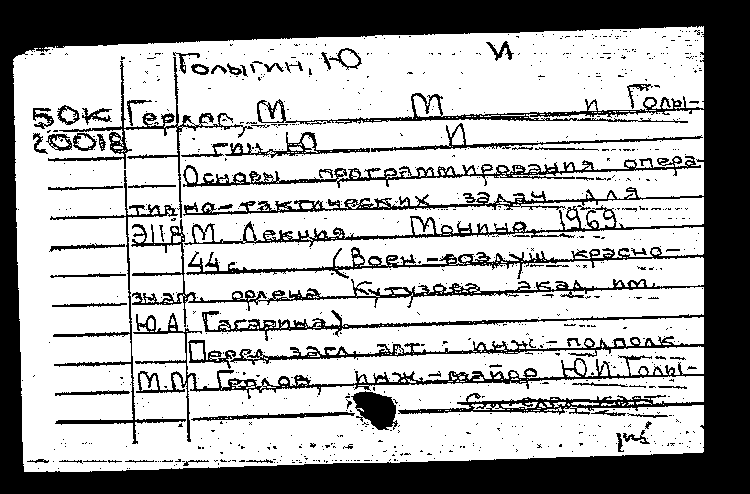 Голыгин, Ю И
50К Герлов, М М и Голы-
20018 гин, Ю И
Основы программирования опера-
тивно-тактических задач для
ЭЦВМ. Лекция. Монино, 1969.
44 с. (Воен.-воздуш. красно-
знам. ордена Кутузова акад. им.
Ю.А. Гагарина)
Перед загл. авт.: инж.-подполк.
М.М. Герлов, инж.-майор Ю.И. Голы-
См. след. карт.